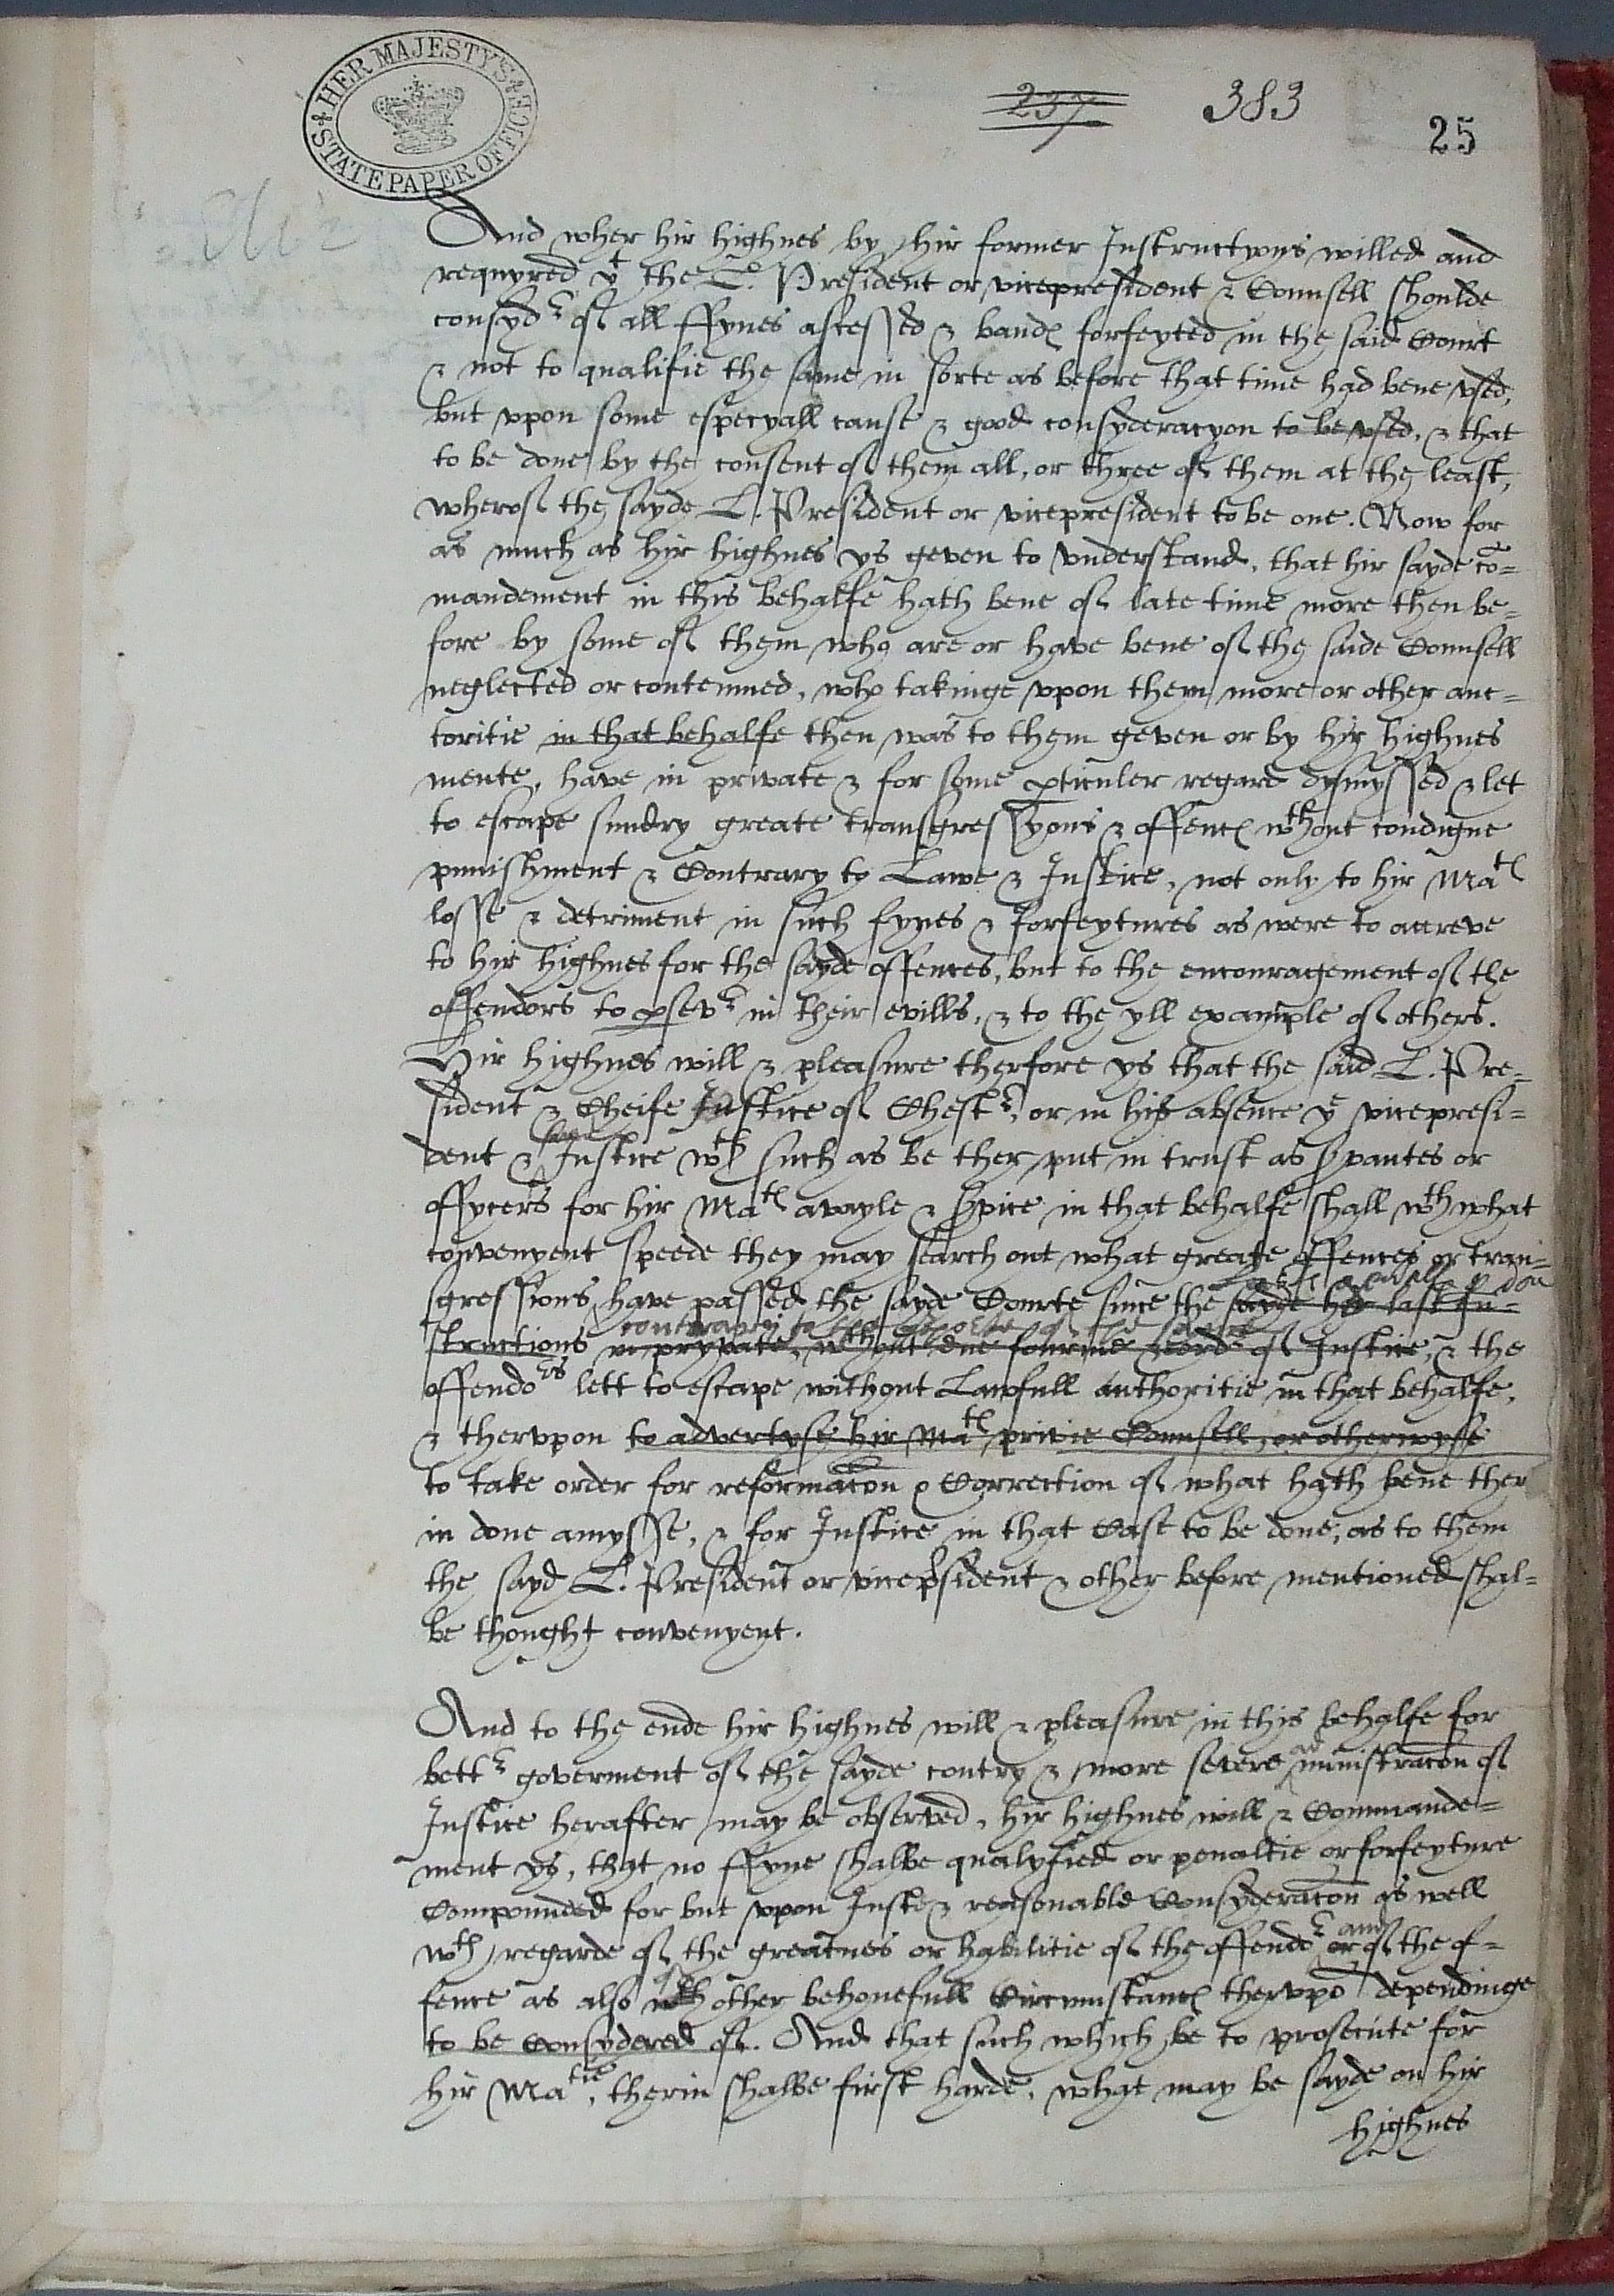 HER MAJESTY'S STATE PAPER OFFICE
237 383
25
And wher hir highnes by hir former Instructyons willed and
requyred yt the L. President or vicepresident & Counsell shoulde
consydr of all ffynes assessed & bands forfeyted in the said Court
& not to qualifie the same in sorte as before that time had bene vsed,
but vpon some especyall cause & good consyderacyon to be vsed, & that
to be done by the consent of them all, or three of them at the least,
wherof the sayde L. President or vicepresident to be one. Now for
as much as hyr highnes ys geven to vnderstand, that hir sayde co=
mandement in this behalfe hath bene of late time more then be=
fore by some of them who are or have bene of the saide Counsell
neglected or contemned, who takinge vpon them more or other auc=
toritie in that behalfe then was to them geven or by hyr highnes
mente, have in private & for some pticuler regard dysmyssed & let
to escape sundry greate transgressyons & offences wthout condigne
punishment & Contrary to Lawe & Justice, not only to hir Mats
losse & detriment in such fynes & forfeytures as were to accreve
to hir highnes for the sayde offences, but to the encouragement of the
offendors to psevr in their evills, & to the yll example of others.
Hir highnes will & pleasure therfore ys that the said L. Pre=
sident & Cheife Justice of Chestr, or in his absence ye vicepresi=
dent & Justice wth such as be ther put in trust as svantes or
offycers for hir Mats avayle & svice in that behalfe shall wth what
convenyent speede they may search out what greate offences or tran=
sgressions have passed the sayde Courte since the last generall pdon
sayde hir last In=
contrary to the
structions in pryvate, wthout due fourme & order of Justice, & the
offendors lett to escape without Lawfull authoritie in that behalfe,
& thervpon to advertyse hir Mats privie Counsell, or otherwyse
to take order for reformacon & Correction of what hath bene ther
in done amysse, & for Justice in that Case to be done, as to them
the sayd L. President or vicepsident & other before mentioned shal=
be thought convenyent.
And to the ende hir highnes will & pleasure in this behalfe for
bettr goverment of the sayde contry & more severe administracon of
Justice herafter may be observed, hyr highnes will & Commande=
ment ys, that no ffyne shalbe qualyfied or penaltie or forfeyture
Compounded for but vpon Juste & reasonable Consyderacon as well
wth regarde of the greatnes or habilitie of the offendr or and of the of=
fence as also wth of other behouefull Circumstances thervpo depondinge
to be Consydered of. And that such which be to prosecute for
hyr Matie, therin shalbe first harde, what may be sayde on hyr
highnes